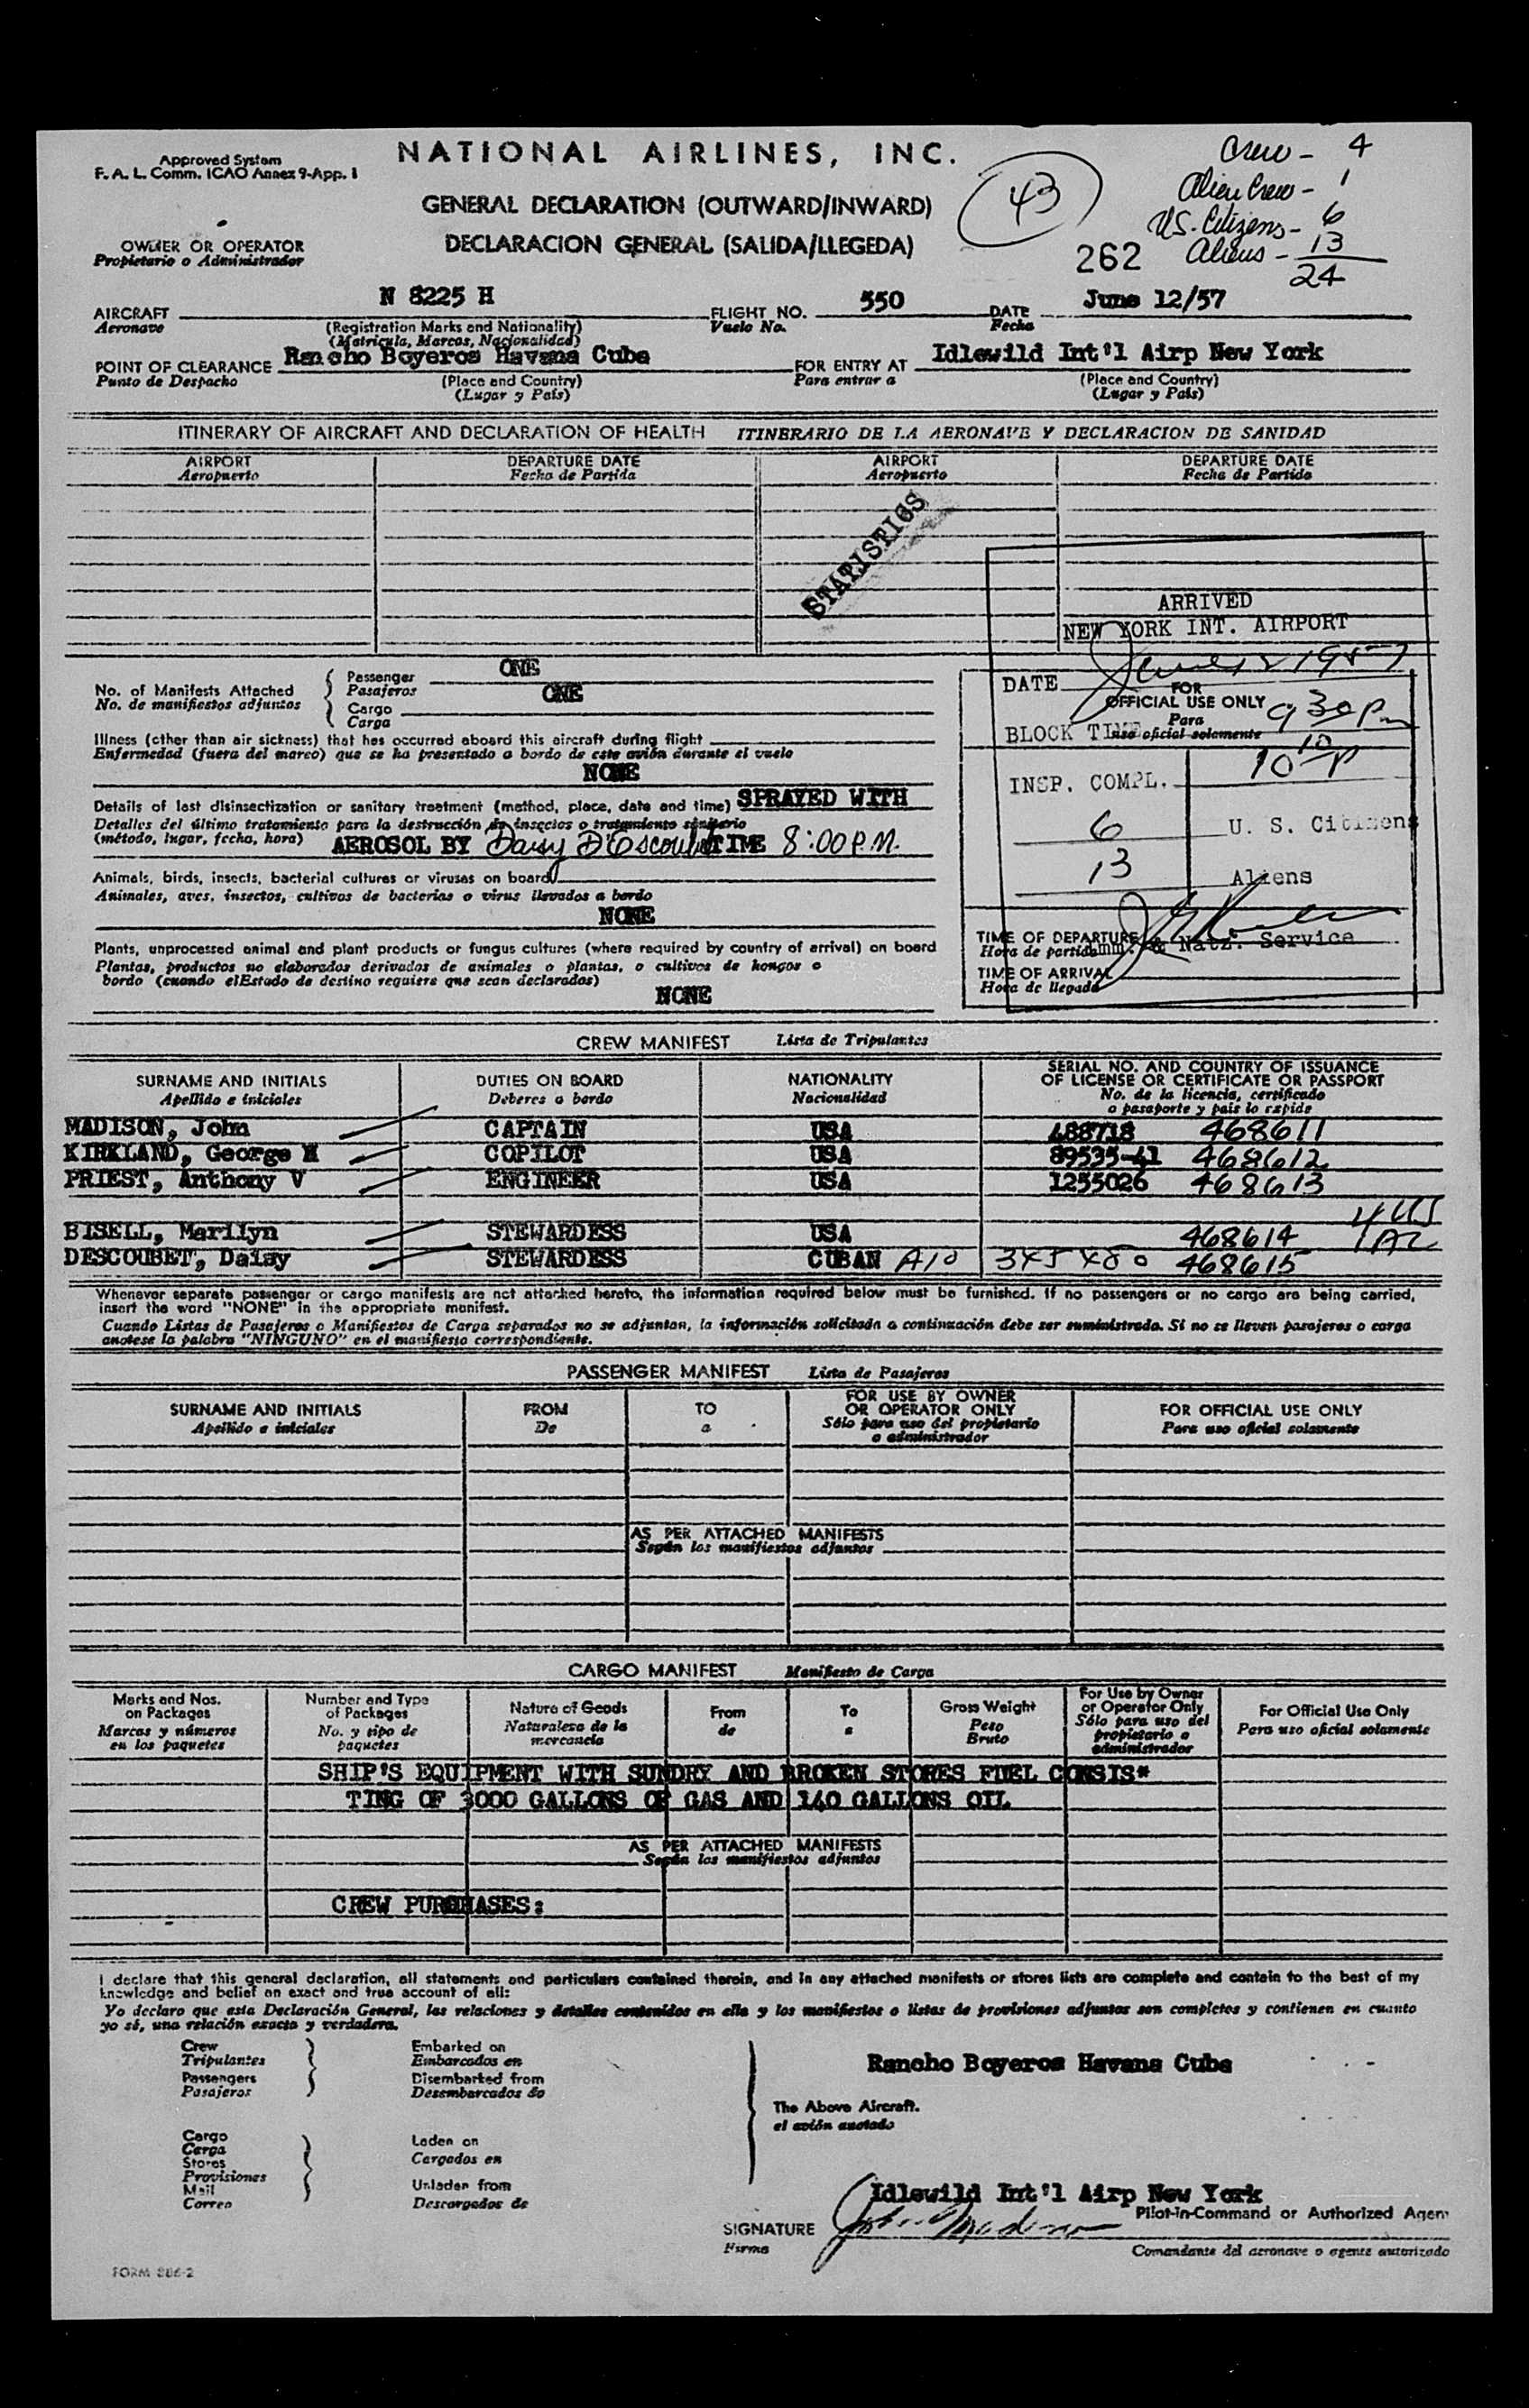 Approved System
F. A. L. Comm. ICAO Annex 9-App. 1
NATIONAL AIRLINES, INC.
GENERAL DECLARATION (OUTWARD/INWARD)
DECLARACION GENERAL (SALIDA/LLEGEDA)
43
262
Crew - 4
Alien Crew - 1
U.S. Citizens - 6
Aliens - 13
24
OWNER OR OPERATOR
Propietario o Administrador
AIRCRAFT N 8225 H FLIGHT NO. 550 DATE June 12/57
Aeronave (Registration Marks and Nationality) Vuelo No. Fecha
(Matricula, Marcas, Nacionalidad)
POINT OF CLEARANCE Rancho Boyeros Havana Cuba FOR ENTRY AT Idlewild Int'l Airp New York
Punto de Despacho (Place and Country) Para entrar a (Place and Country)
(Lugar y País) (Lugar y País)
ITINERARY OF AIRCRAFT AND DECLARATION OF HEALTH ITINERARIO DE LA AERONAVE Y DECLARACION DE SANIDAD
AIRPORT DEPARTURE DATE AIRPORT DEPARTURE DATE
Aeropuerto Fecha de Partida Aeropuerto Fecha de Partida
STATISTICS
ARRIVED
NEW YORK INT. AIRPORT
DATE June 12 1957
FOR
OFFICIAL USE ONLY
Para
uso oficial solamente
BLOCK TIME 9 30 Pm
INSP. COMPL. 10 10 P
6 U. S. Citizens
13 Aliens
& Natz. Service
TIME OF DEPARTURE
Hora de partida
TIME OF ARRIVAL
Hora de llegada
No. of Manifests Attached Passenger ONE
No. de manifiestos adjuntos Pasajeros
Cargo ONE
Carga
Illness (other than air sickness) that has occurred aboard this aircraft during flight
Enfermedad (fuera del mareo) que se ha presentado a bordo de este avión durante el vuelo
NONE
Details of last disinsectization or sanitary treatment (method, place, date and time) SPRAYED WITH
Detalles del último tratamiento para la destrucción de insectos o tratamiento sanitario
(método, lugar, fecha, hora) AEROSOL BY Daisy D'Escoubet TIME 8:00 P.M.
Animals, birds, insects, bacterial cultures or viruses on board
Animales, aves, insectos, cultivos de bacterias o virus llevados a bordo
NONE
Plants, unprocessed animal and plant products or fungus cultures (where required by country of arrival) on board
Plantas, productos no elaborados derivados de animales o plantas, o cultivos de hongos o
bordo (cuando elEstado de destino requiere que sean declarados)
NONE
CREW MANIFEST Lista de Tripulantes
SURNAME AND INITIALS DUTIES ON BOARD NATIONALITY SERIAL NO. AND COUNTRY OF ISSUANCE
OF LICENSE OR CERTIFICATE OR PASSPORT
Apellido e iniciales Deberes a bordo Nacionalidad No. de la licencia, certificado
o pasaporte y país lo expide
MADISON, John CAPTAIN USA 488718 468611
KIRKLAND, George H COPILOT USA 89535-41 468612
PRIEST, Anthony V ENGINEER USA 1255026 468613
4 US
BISELL, Marilyn STEWARDESS USA 468614
DESCOUBET, Daisy STEWARDESS CUBAN 468615
Whenever separate passenger or cargo manifests are not attached hereto, the information required below must be furnished. If no passengers or no cargo are being carried,
insert the word "NONE" in the appropriate manifest.
Cuando Listas de Pasajeros o Manifiestos de Carga separados no se adjuntan, la información solicitada a continuación debe ser suministrada. Si no se lleven pasajeros o carga
anotese la palabra "NINGUNO" en el manifiesto correspondiente.
PASSENGER MANIFEST Lista de Pasajeros
SURNAME AND INITIALS FROM TO FOR USE BY OWNER
OR OPERATOR ONLY FOR OFFICIAL USE ONLY
Apellido e iniciales De a Sólo para uso del propietario
o administrador Para uso oficial solamente
AS PER ATTACHED MANIFESTS
Según los manifiestos adjuntos
CARGO MANIFEST Manifiesto de Carga
Marks and Nos.
on Packages
Marcas y números
en los paquetes
Number and Type
of Packages
No. y tipo de
paquetes
Nature of Goods
Naturaleza de la
mercancía
From
de
To
a
Gross Weight
Peso
Bruto
For Use by Owner
or Operator Only
Sólo para uso del
propietario o
administrador
For Official Use Only
Para uso oficial solamente
SHIP'S EQUIPMENT WITH SUNDRY AND BROKEN STORES FUEL CONSIS*
TING OF 3000 GALLONS OF GAS AND 140 GALLONS OIL
AS PER ATTACHED MANIFESTS
Según los manifiestos adjuntos
CREW PURCHASES:
I declare that this general declaration, all statements and particulars contained therein, and in any attached manifests or stores lists are complete and contain to the best of my
knowledge and belief an exact and true account of all:
Yo declaro que esta Declaración General, las relaciones y detalles contenidos en ella y los manifiestos o listas de provisiones adjuntos son completos y contienen en cuanto
yo sé, una relación exacta y verdadera.
Crew Embarked on
Tripulantes Embarcados en
Passengers Disembarked from
Pasajeros Desembarcados de
Rancho Boyeros Havana Cuba
The Above Aircraft.
el avión anotado
Cargo Laden on
Carga Cargados en
Stores
Provisiones
Mail Unladen from
Correo Descargados de
Idlewild Int'l Airp New York
SIGNATURE John Madison Pilot-in-Command or Authorized Agent
Firma Comandante del aeronave o agente autorizado
FORM 886-2